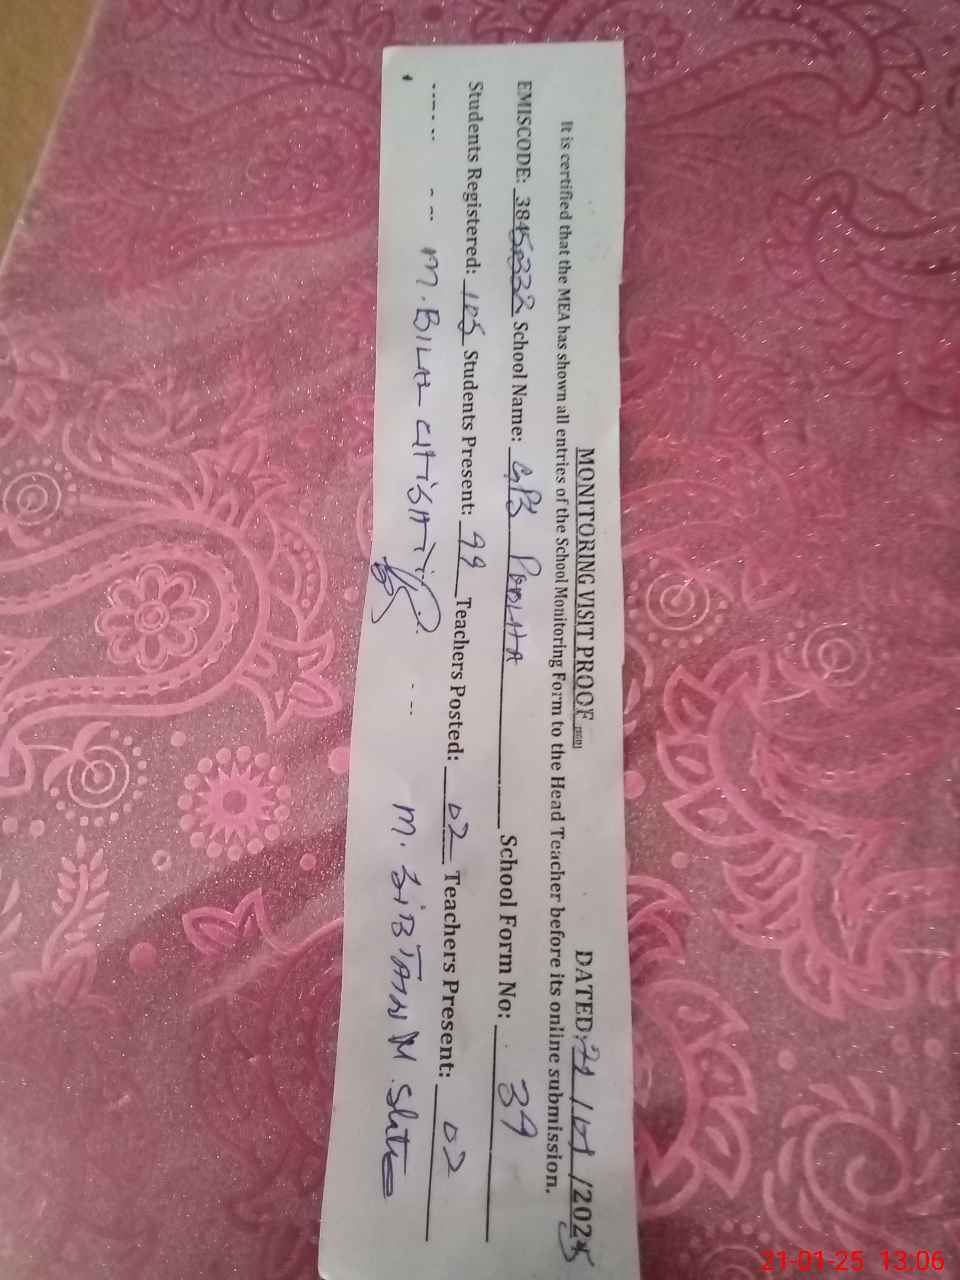 MONITORING VISIT PROOF DATED: 21 / 01 / 2025
It is certified that the MEA has shown all entries of the School Monitoring Form to the Head Teacher before its online submission.
EMISCODE: 38450332 School Name: GPS School Form No: 39
Students Registered: 105 Students Present: 99 Teachers Posted: 02 Teachers Present: 02
M. BILAL M. SIBTAIN M.
21-01-25 13:06